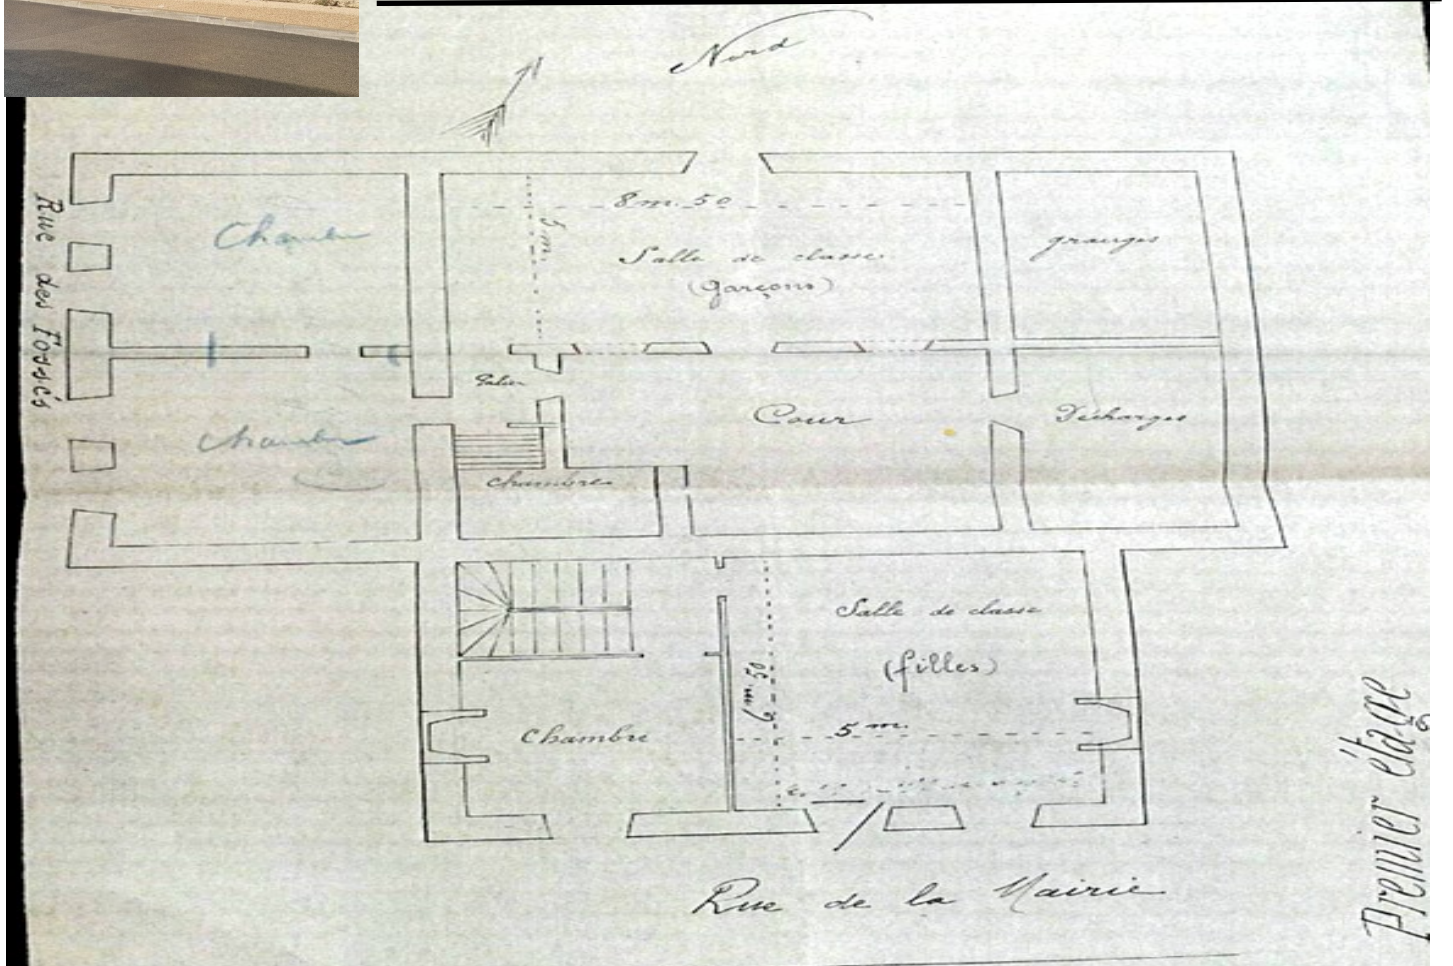 Nord
Rue des Fossés
Chambre
8 m. 50
5 m.
Salle de classe
(garçons)
granges
Palier
Chambre
Cour
Décharges
chambre
Salle de classe
(filles)
6 m 50
5 m.
Chambre
Rue de la Mairie
Premier étage